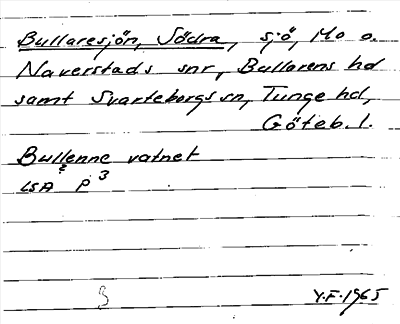 Bullaresjön, Södra, sjö, Mo o.
Naverstads snr, Bullarens hd
samt Svarteborgs sn, Tunge hd,
Göteb. l.
Bullenne vatnet
LSA P 3
Y.F. 1965